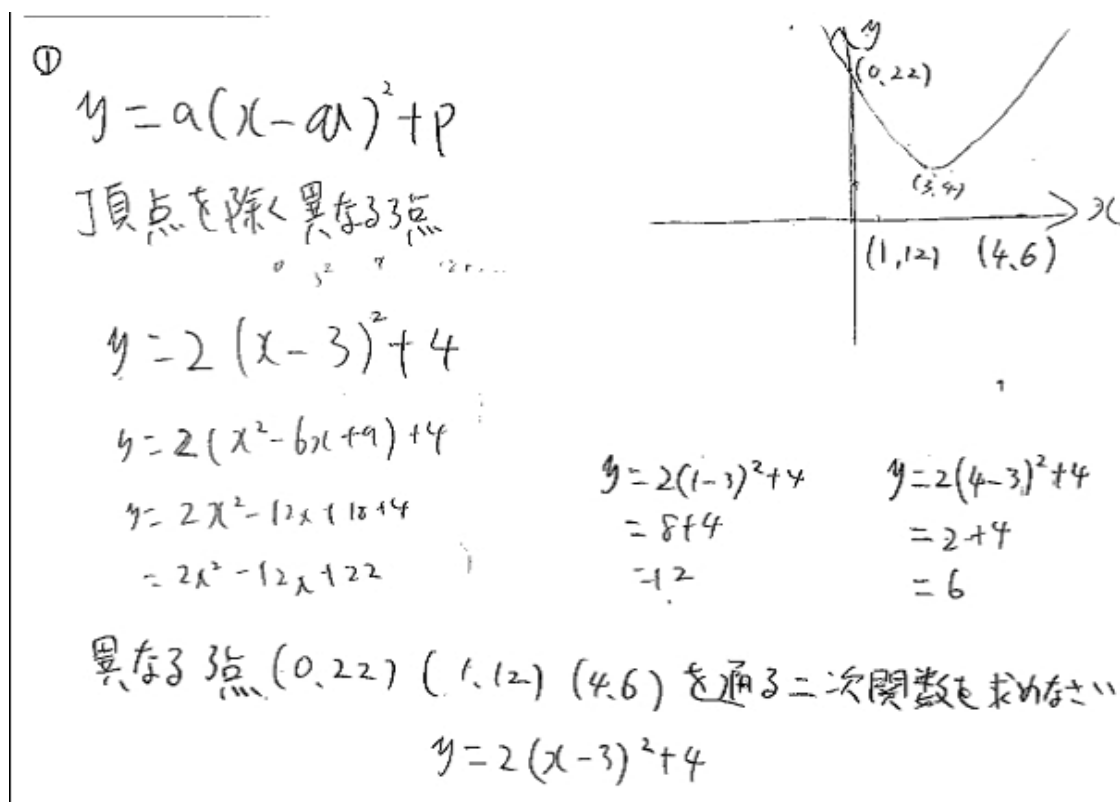 ①
y=a(x-a)²+p
頂点を除く異なる3点
y=2(x-3)²+4
y=2(x²-6x+9)+4
y=2x²-12x+18+4
=2x²-12x+22
y
(0,22)
(3,4)
x
(1,12) (4,6)
y=2(1-3)²+4
=8+4
=12
y=2(4-3)²+4
=2+4
=6
異なる3点(0,22) (1,12) (4,6)を通る二次関数を求めなさい
y=2(x-3)²+4